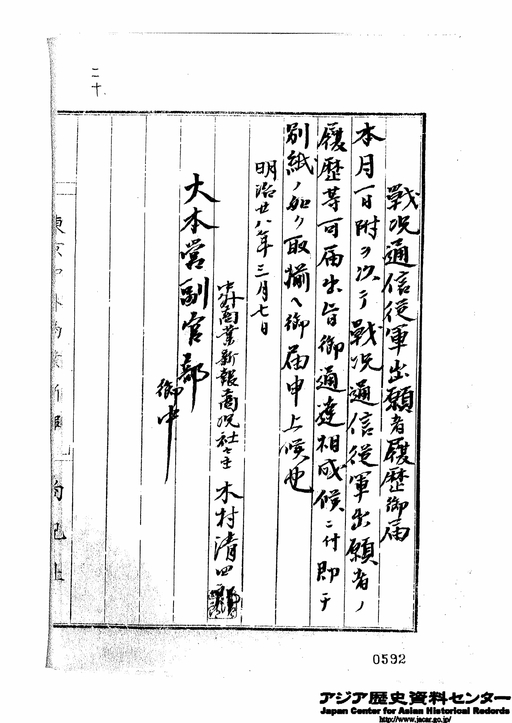 二十
戰況通信従軍出願者履歴御届
本月一日附ヲ以テ戰況通信従軍出願者ノ
履歴等可届出旨御通達相成候ニ付即チ
別紙ノ如ク取揃ヘ御届申上候也
明治廿八年三月七日
中外商業新報商况社々主 木村清四郎
大本営副官部
御中
0592
アジア歴史資料センター
Japan Center for Asian Historical Records
http://www.jacar.go.jp/